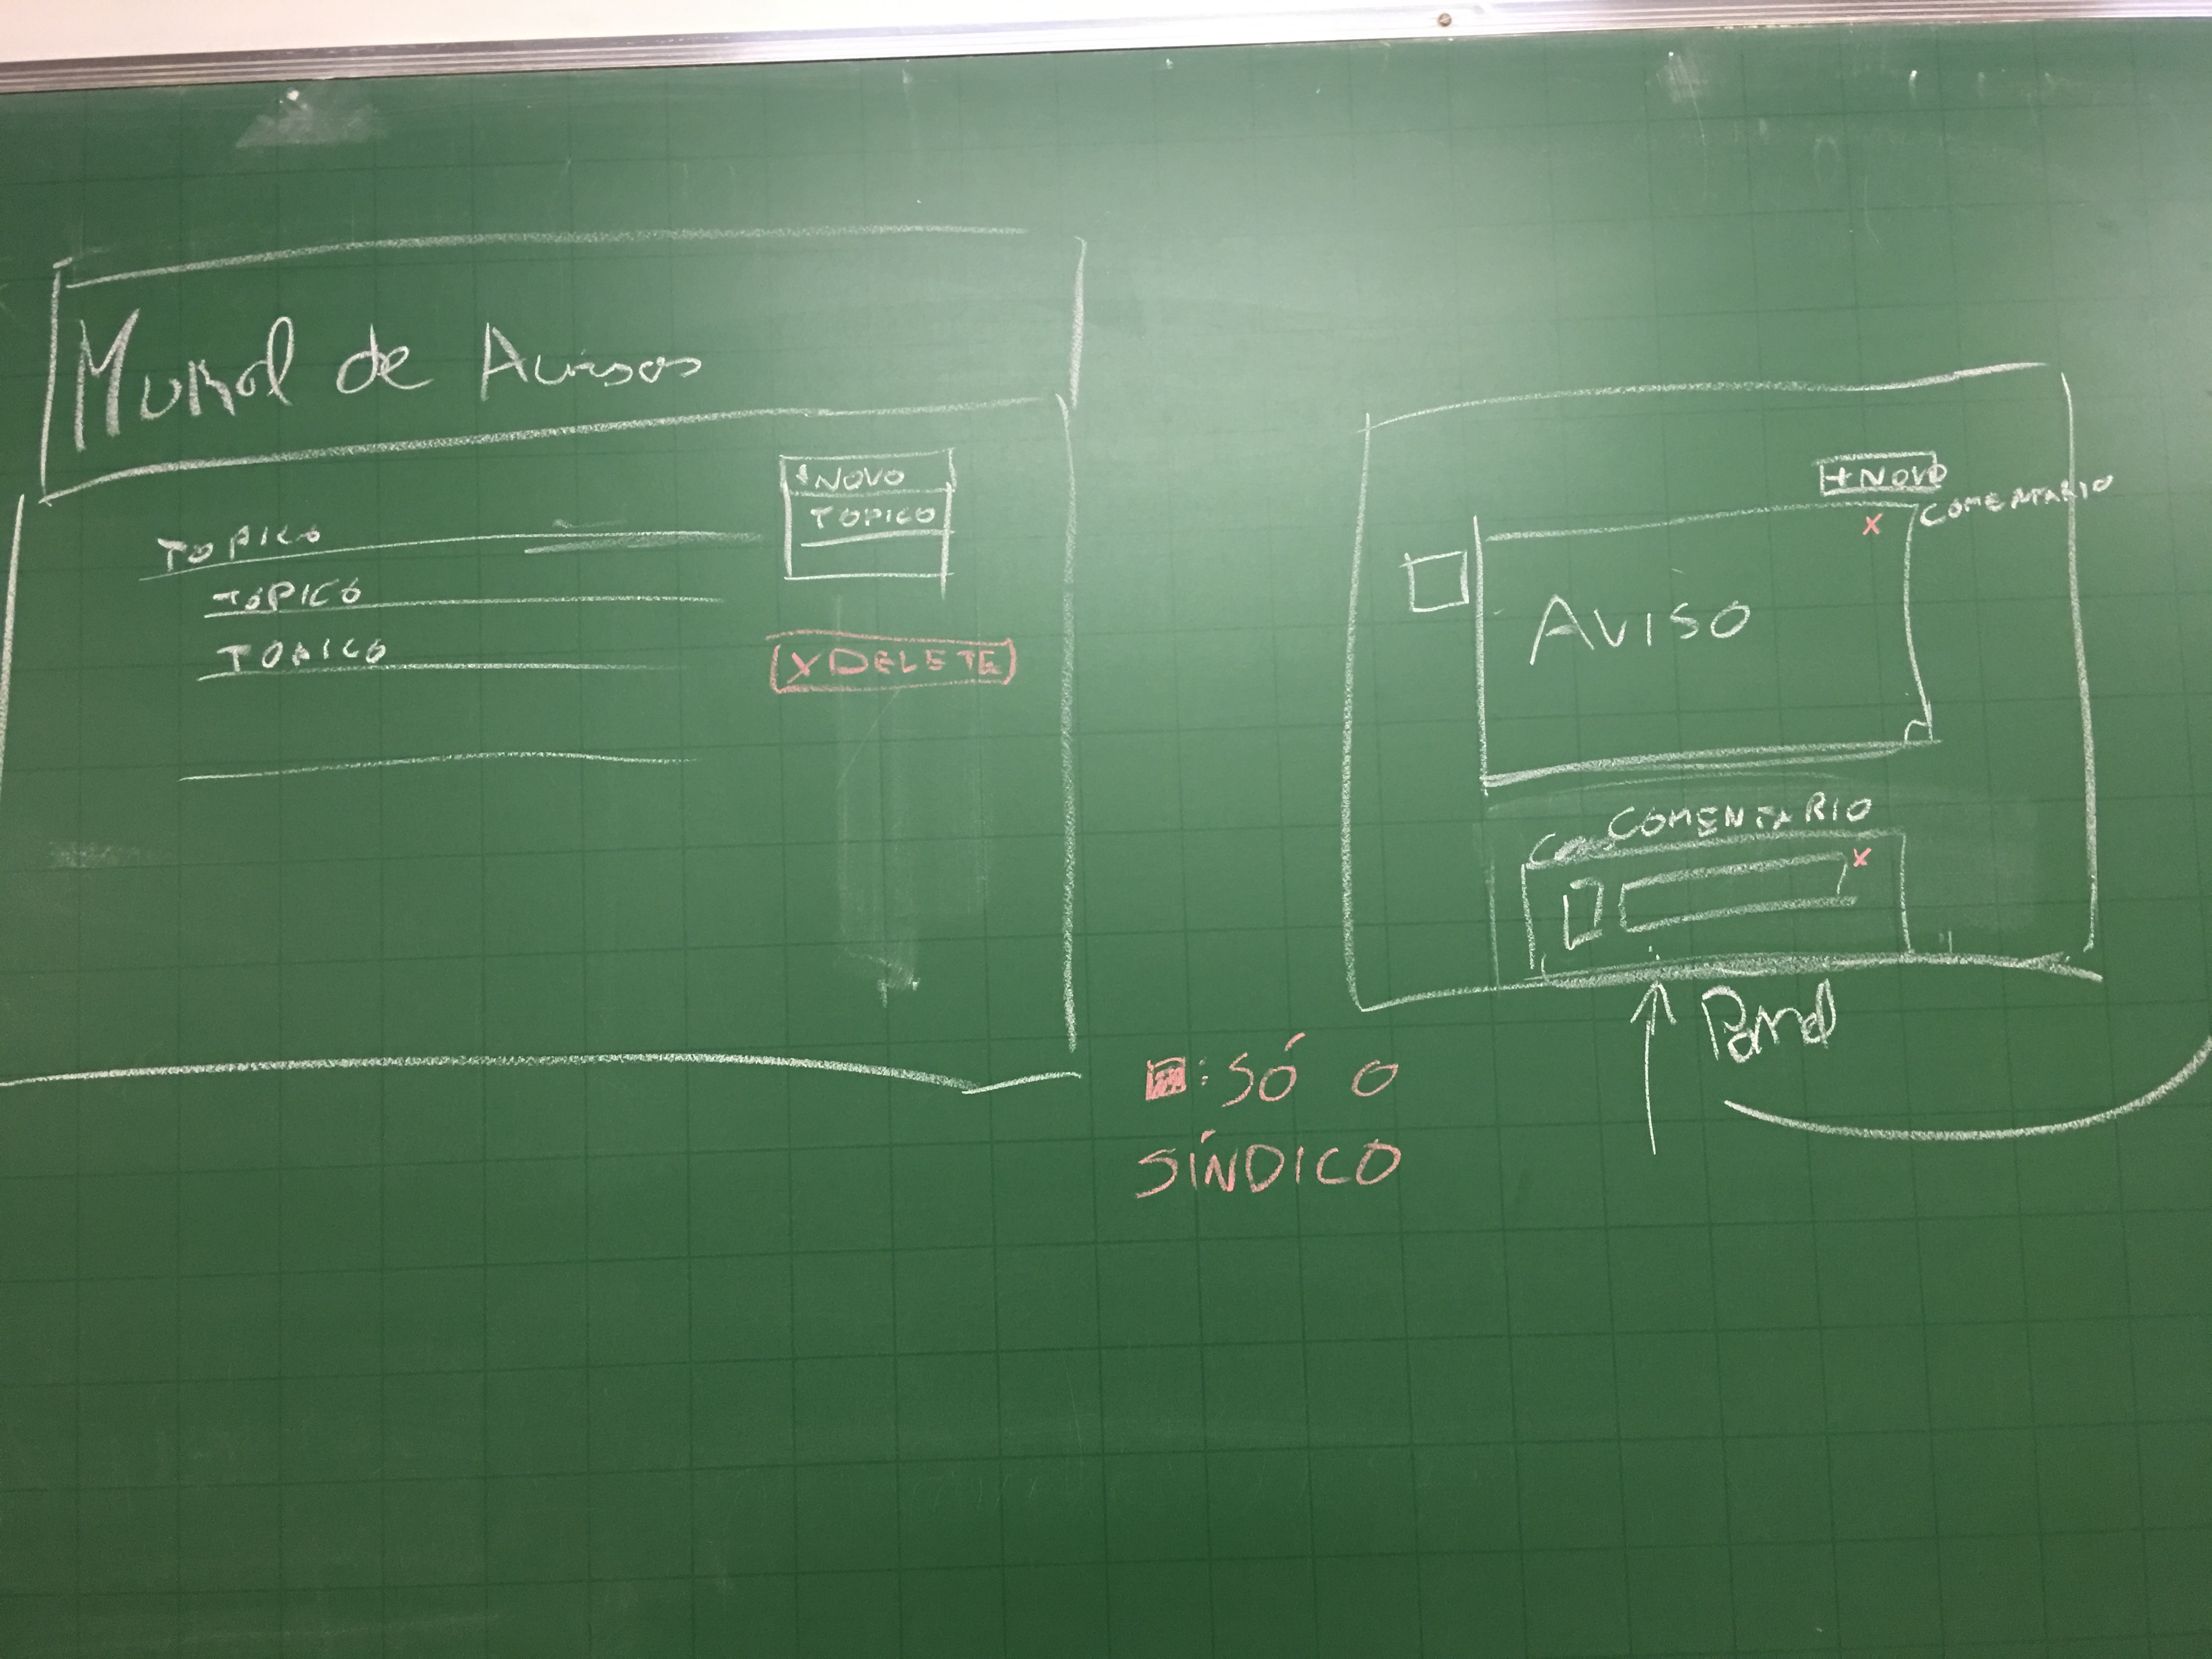 Mural de Avisos
+NOVO
TOPICO
TOPICO
TOPICO
TOPICO
X DELETE
+NOVO
COMENTARIO
X
AVISO
COMENTARIO
X
: SÓ O
SÍNDICO